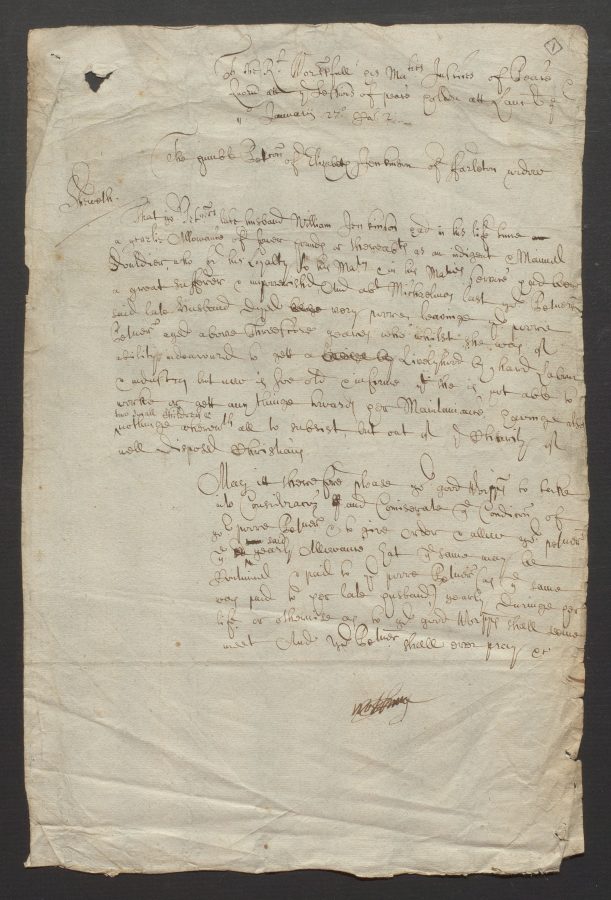 1
To the Rt Worshfull his Maties Justices of Peace
att ye Sessions of peace holden att
January
The humble Peticon of Elizabeth Jenkinson of Farleton widow
Sheweth.
That yor Peticonrs late husband William Jenkinson had in his life time
a yearlie Allowance of fower pounds or thereabts as an indigent & Maimed
Souldier who for his Loyalty to his Matie & in his Maties Service had been
a great sufferer & impoverished And abt Michelmas last yor Petners
said late husband dyed very poore leaveinge yor poore
Petner aged above Threescore yeares who whilst she was of
ability indeavoured to gett a Livelyhood by hard labour
& industry but now is soe old & infirme yt she is not able to
worke or gett any thinge towards her Maintenance haveinge alsoe
two small children &
nothinge wherewth all to subsist, but out of ye Charity of
well disposed Christians
May itt therefore please yor good Worpps to take
into Consideracon and Comiserate ye Condicon of
yor poore Petner & to give Order & allow yor Petner
ye said
yearly Allowance that ye same may be
Continued & paid to yor poore Petner (as ye same
was paid to her late husband) yearly dureinge her
life or otherwise as to yor good Worpps shall seeme
meet And yor Petner shall ever pray &c